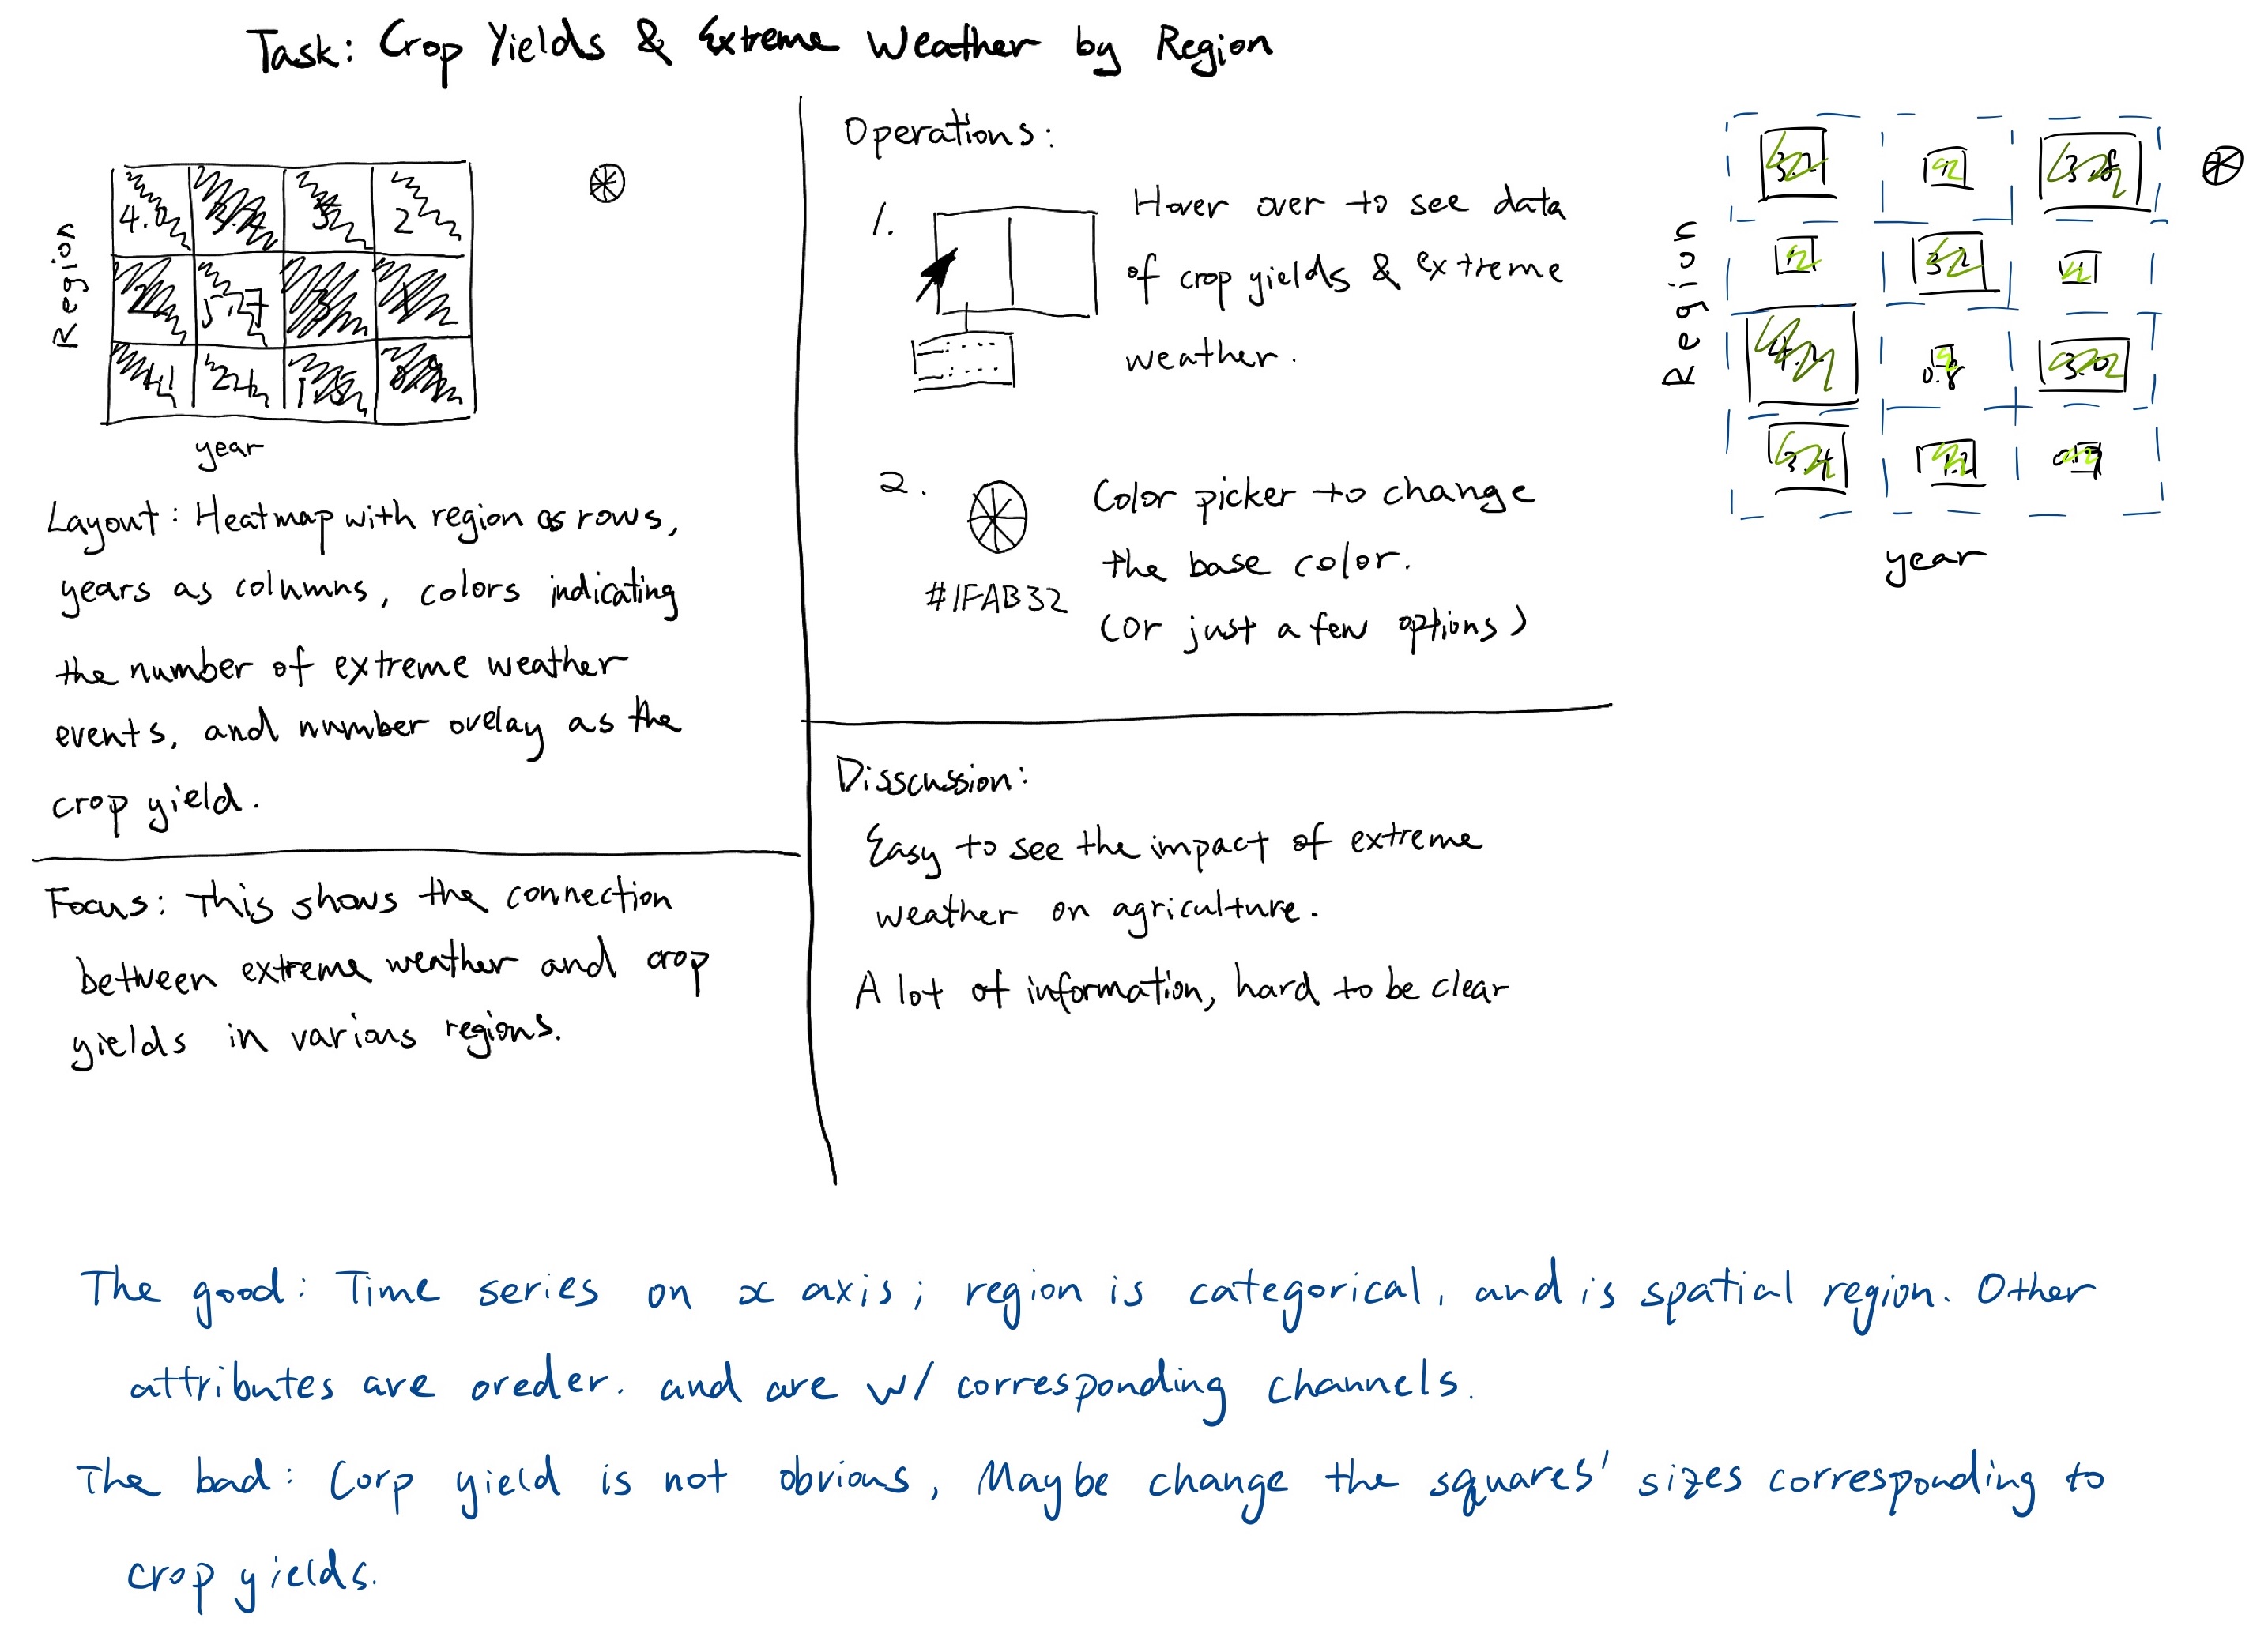 Task: Crop Yields & Extreme Weather by Region
Region
4.2
2
2
3
1
year
Layout: Heatmap with region as rows,
years as columns, colors indicating
the number of extreme weather
events, and number ovelay as the
crop yield.
Focus: This shows the connection
between extreme weather and crop
yields in various regions.
Operations:
1.
Hover over to see data
of crop yields & extreme
weather.
2.
Color picker to change
the base color.
(or just a few options)
#1FAB32
Disscussion:
Easy to see the impact of extreme
weather on agriculture.
A lot of information, hard to be clear
Region
3.2
3.8
3.2
4.2
0.8
3.02
3.4
1.2
year
The good: Time series on x axis; region is categorical, and is spatial region. Other
attributes are oreder. and are w/ corresponding channels.
The bad: Corp yield is not obvious, Maybe change the squares' sizes corresponding to
crop yields.